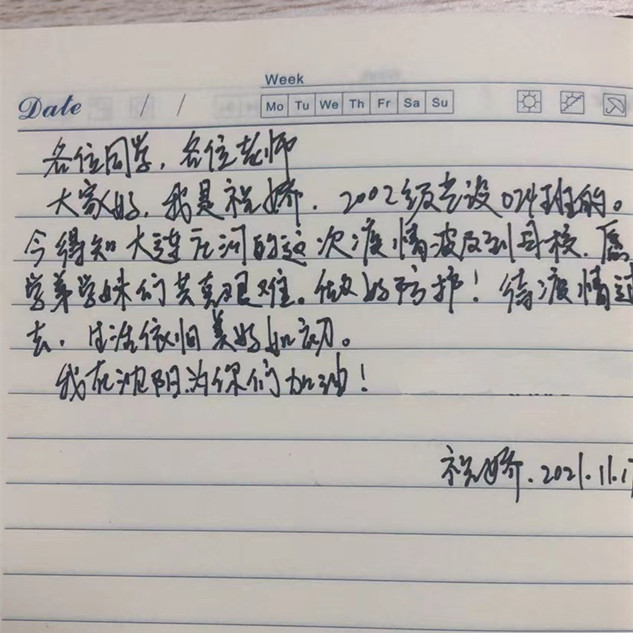 Week
Date / / Mo Tu We Th Fr Sa Su
各位同学，各位老师
大家好，我是祝娇，2002级艺设024班的。
今得知大连庄河的这次疫情波及到母校，愿
学弟学妹们共克艰难。做好防护！待疫情过
去，生活依旧美好如初。
我在沈阳为你们加油！
祝娇．2021.11.17